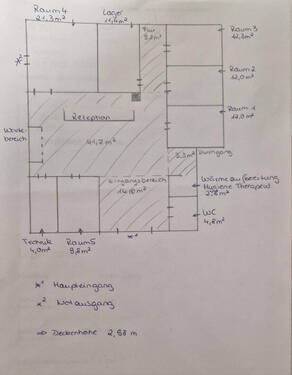 Raum 4
21,3 m²
Lager
11,4 m²
Flur
Raum 3
12,3 m²
Raum 2
12,0 m²
Raum 1
12,0 m²
*²
Reception
Warte-
bereich
41,2 m²
Durchgang
Eingangsbereich
Wärmeaufbereitung
Hygiene Therapeut
WC
4,8 m²
Technik
4,0 m²
Raum 5
9,8 m²
*¹
*¹ Haupteingang
*² Notausgang
⇒ Deckenhöhe 2,98 m